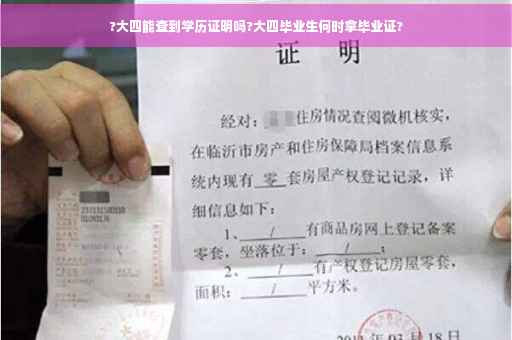 ?大四能查到学历证明吗?大四毕业生何时拿毕业证?
证 明
经对: 住房情况查阅微机核实,
在临沂市房产和住房保障局档案信息系
统内现有 零 套房屋产权登记记录,详
细信息如下:
1、 / 有商品房网上登记备案
零套,坐落位于: / ;
2、 / 有产权登记房屋零套,
面积: / 平方米。
03 月 18 日